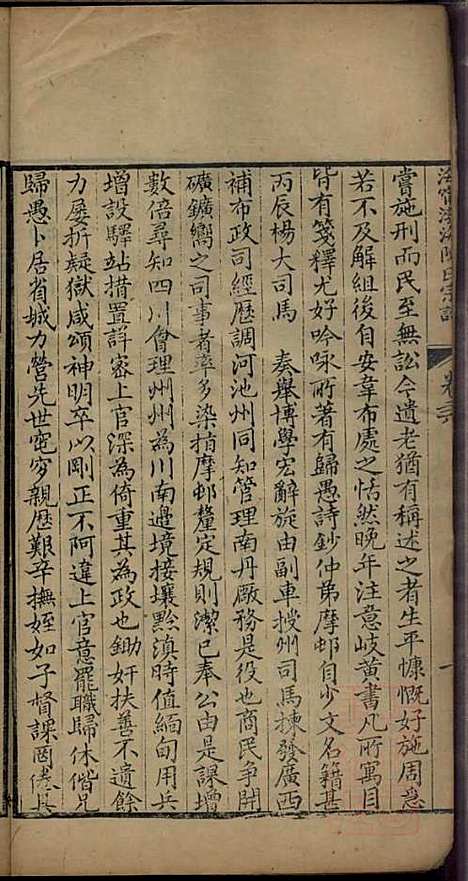 海寧渤海陳氏宗譜 卷二六
嘗施刑而民至無訟今遺老猶有稱述之者生平慷慨好施周急
若不及解組後自安韋布處之恬然晚年注意岐黃書凡所寓目
皆有箋釋尤好吟咏所著有歸愚詩鈔仲弟摩邨自少文名籍甚
丙辰楊大司馬 奏舉博學宏辭旋由副車授州司馬揀發廣西
補布政司經歷調河池州同知管理南丹厰務是役也商民爭開
礦鑛嚮之司事者率多染指摩邨釐定規則潔已奉公由是課增
數倍尋知四川會理州州為川南邊境接壤黔滇時值緬甸用兵
增設驛站措置詳密上官深為倚重其為政也鋤奸扶善不遺餘
力屡折疑獄咸頌神明卒以剛正不阿違上官意罷職歸休偕兄
歸愚卜居省城力營先世窀穸親歷艱辛撫姪如子督課罔倦其